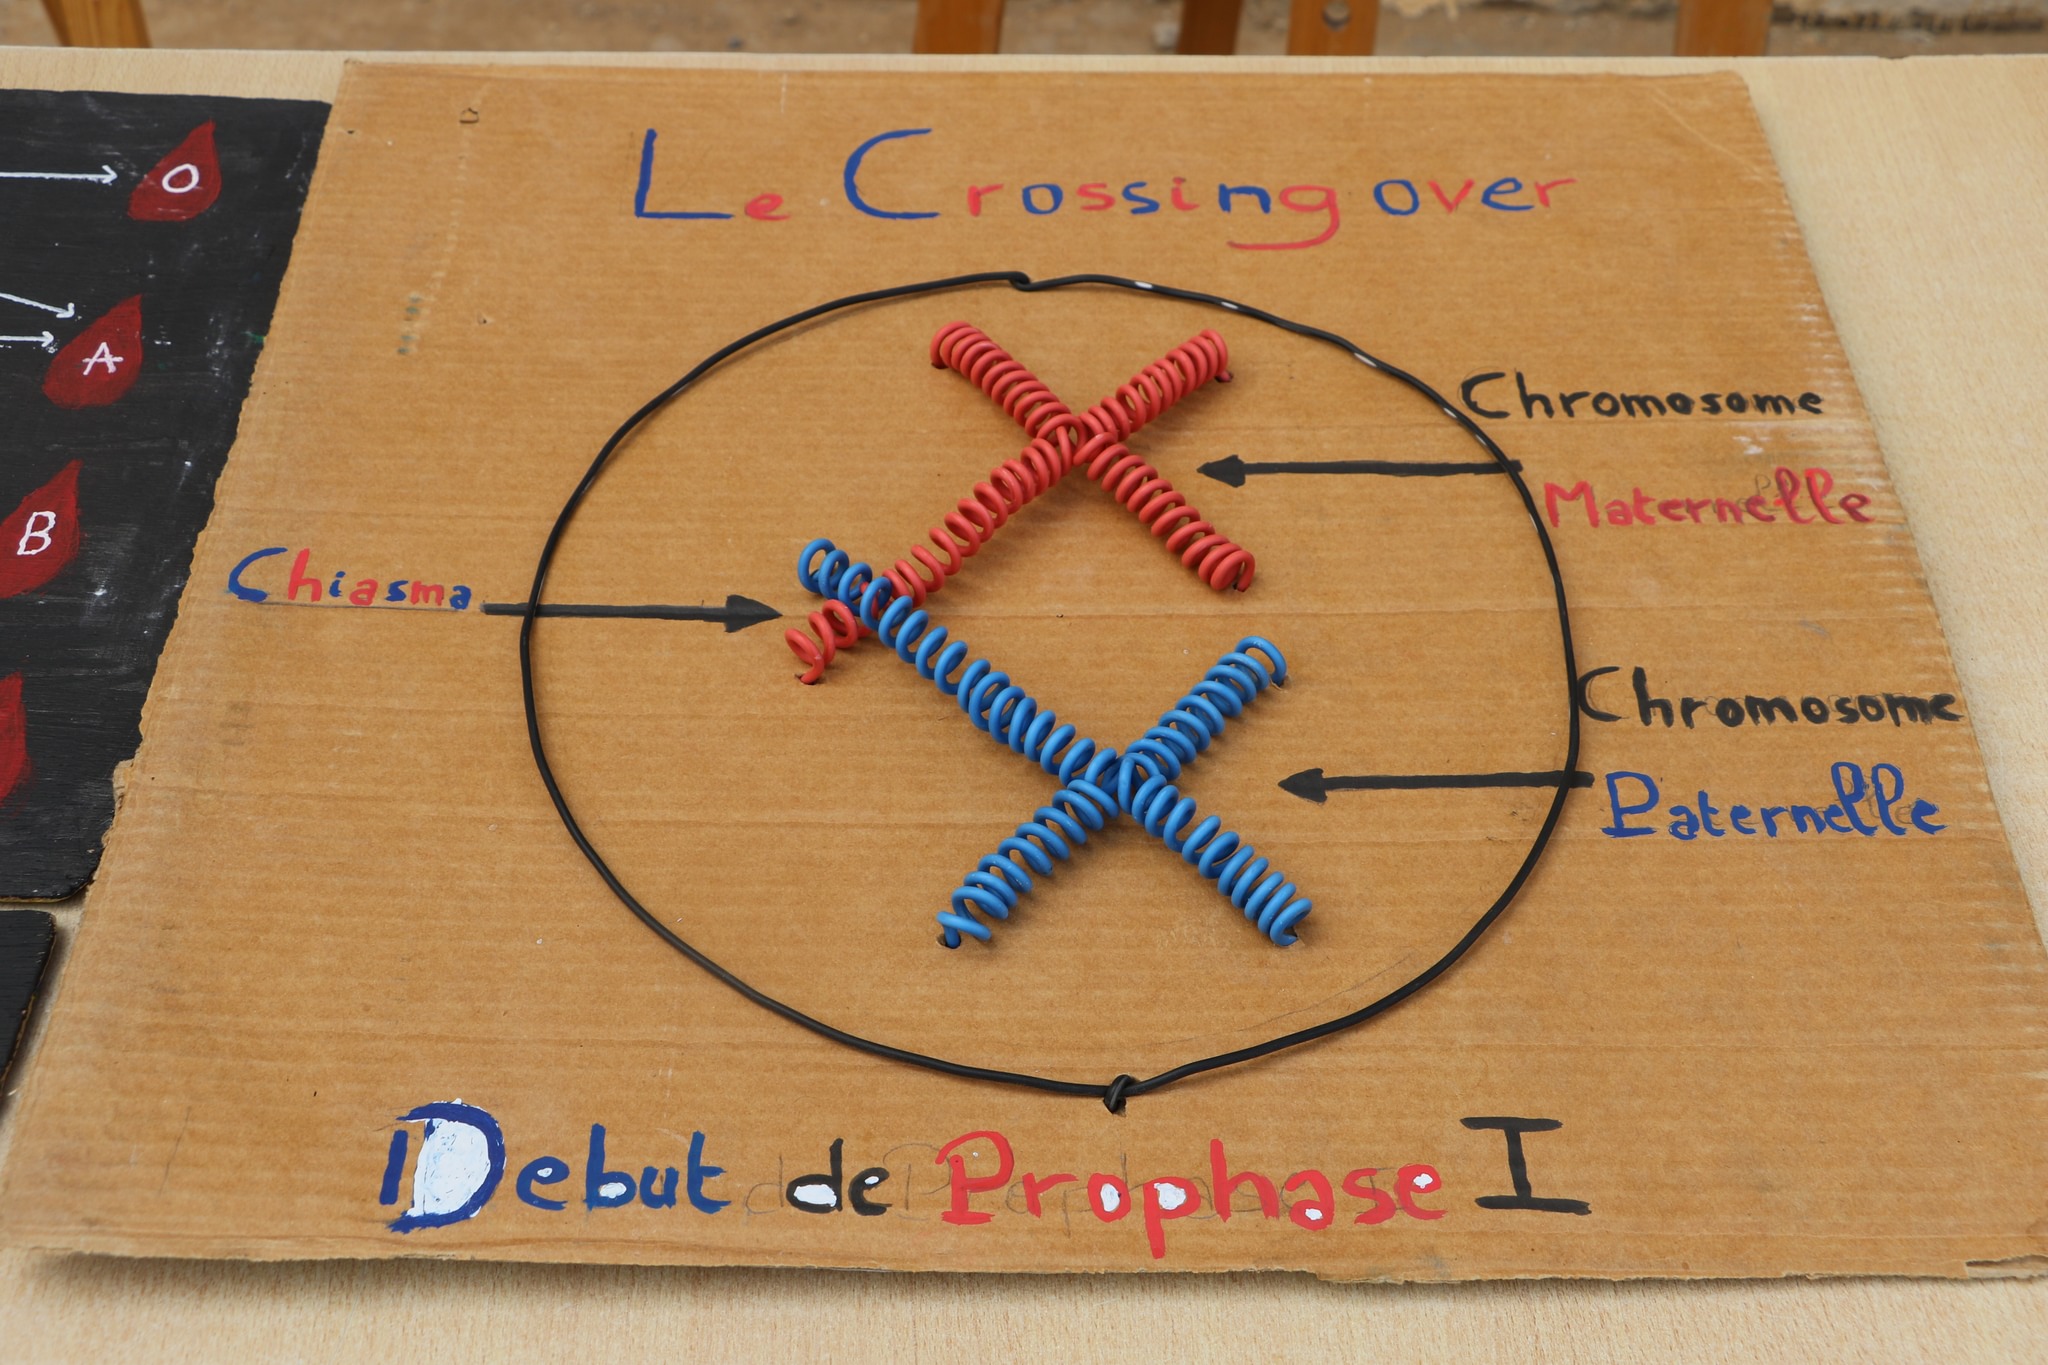 Le Crossing over
O
A
B
Chromosome
Maternelle
Chiasma
Chromosome
Paternelle
Debut de Prophase I